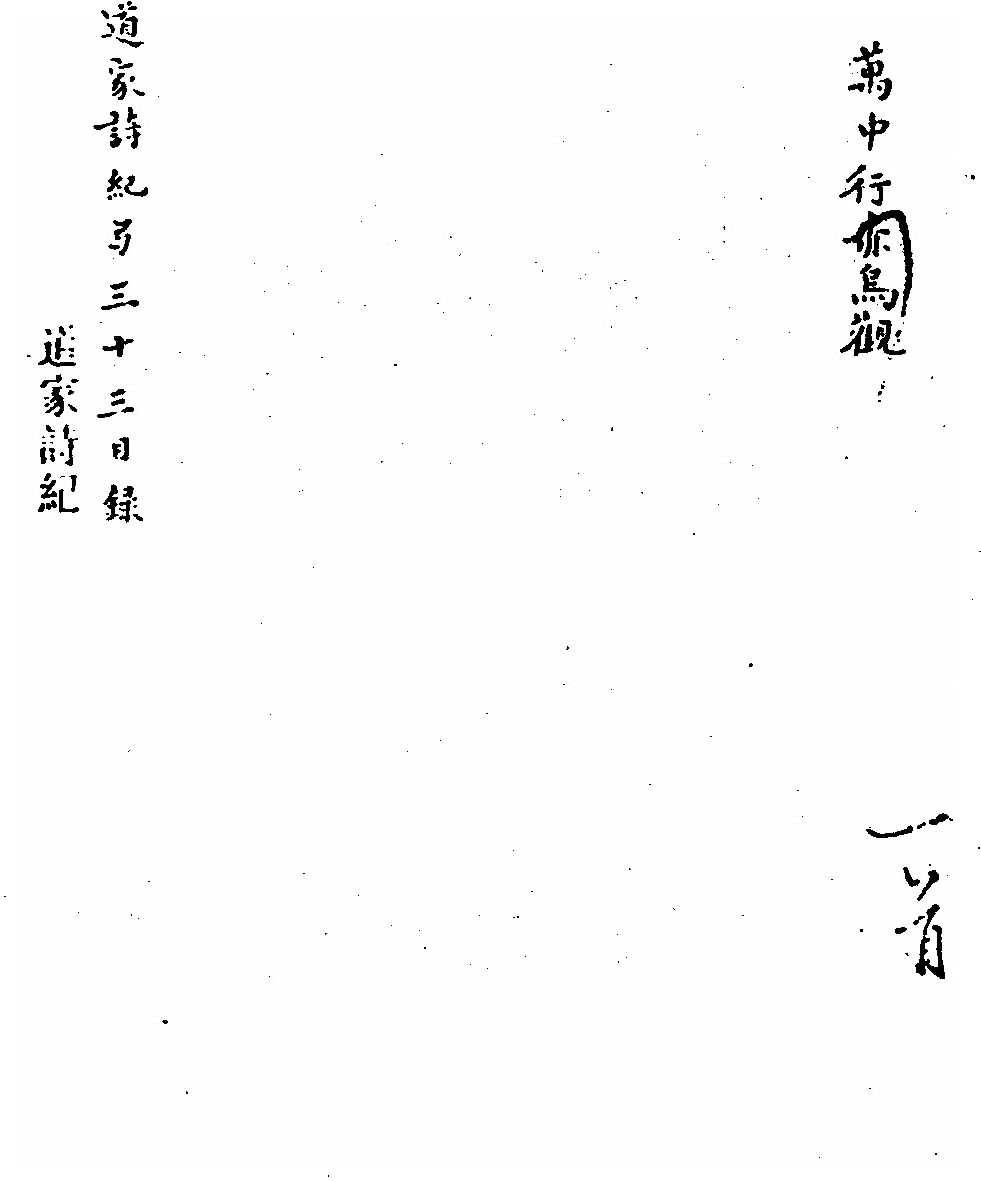 萬中行作烏觀
一首
道家詩紀弓三十三目錄
道家詩紀